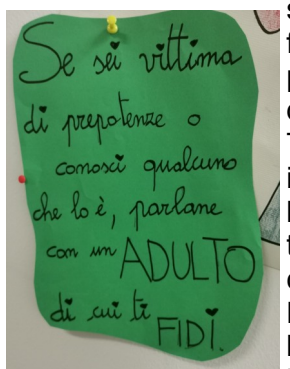 Se sei vittima
di prepotenze o
conosci qualcuno
che lo è, parlane
con un ADULTO
di cui ti
FIDI.